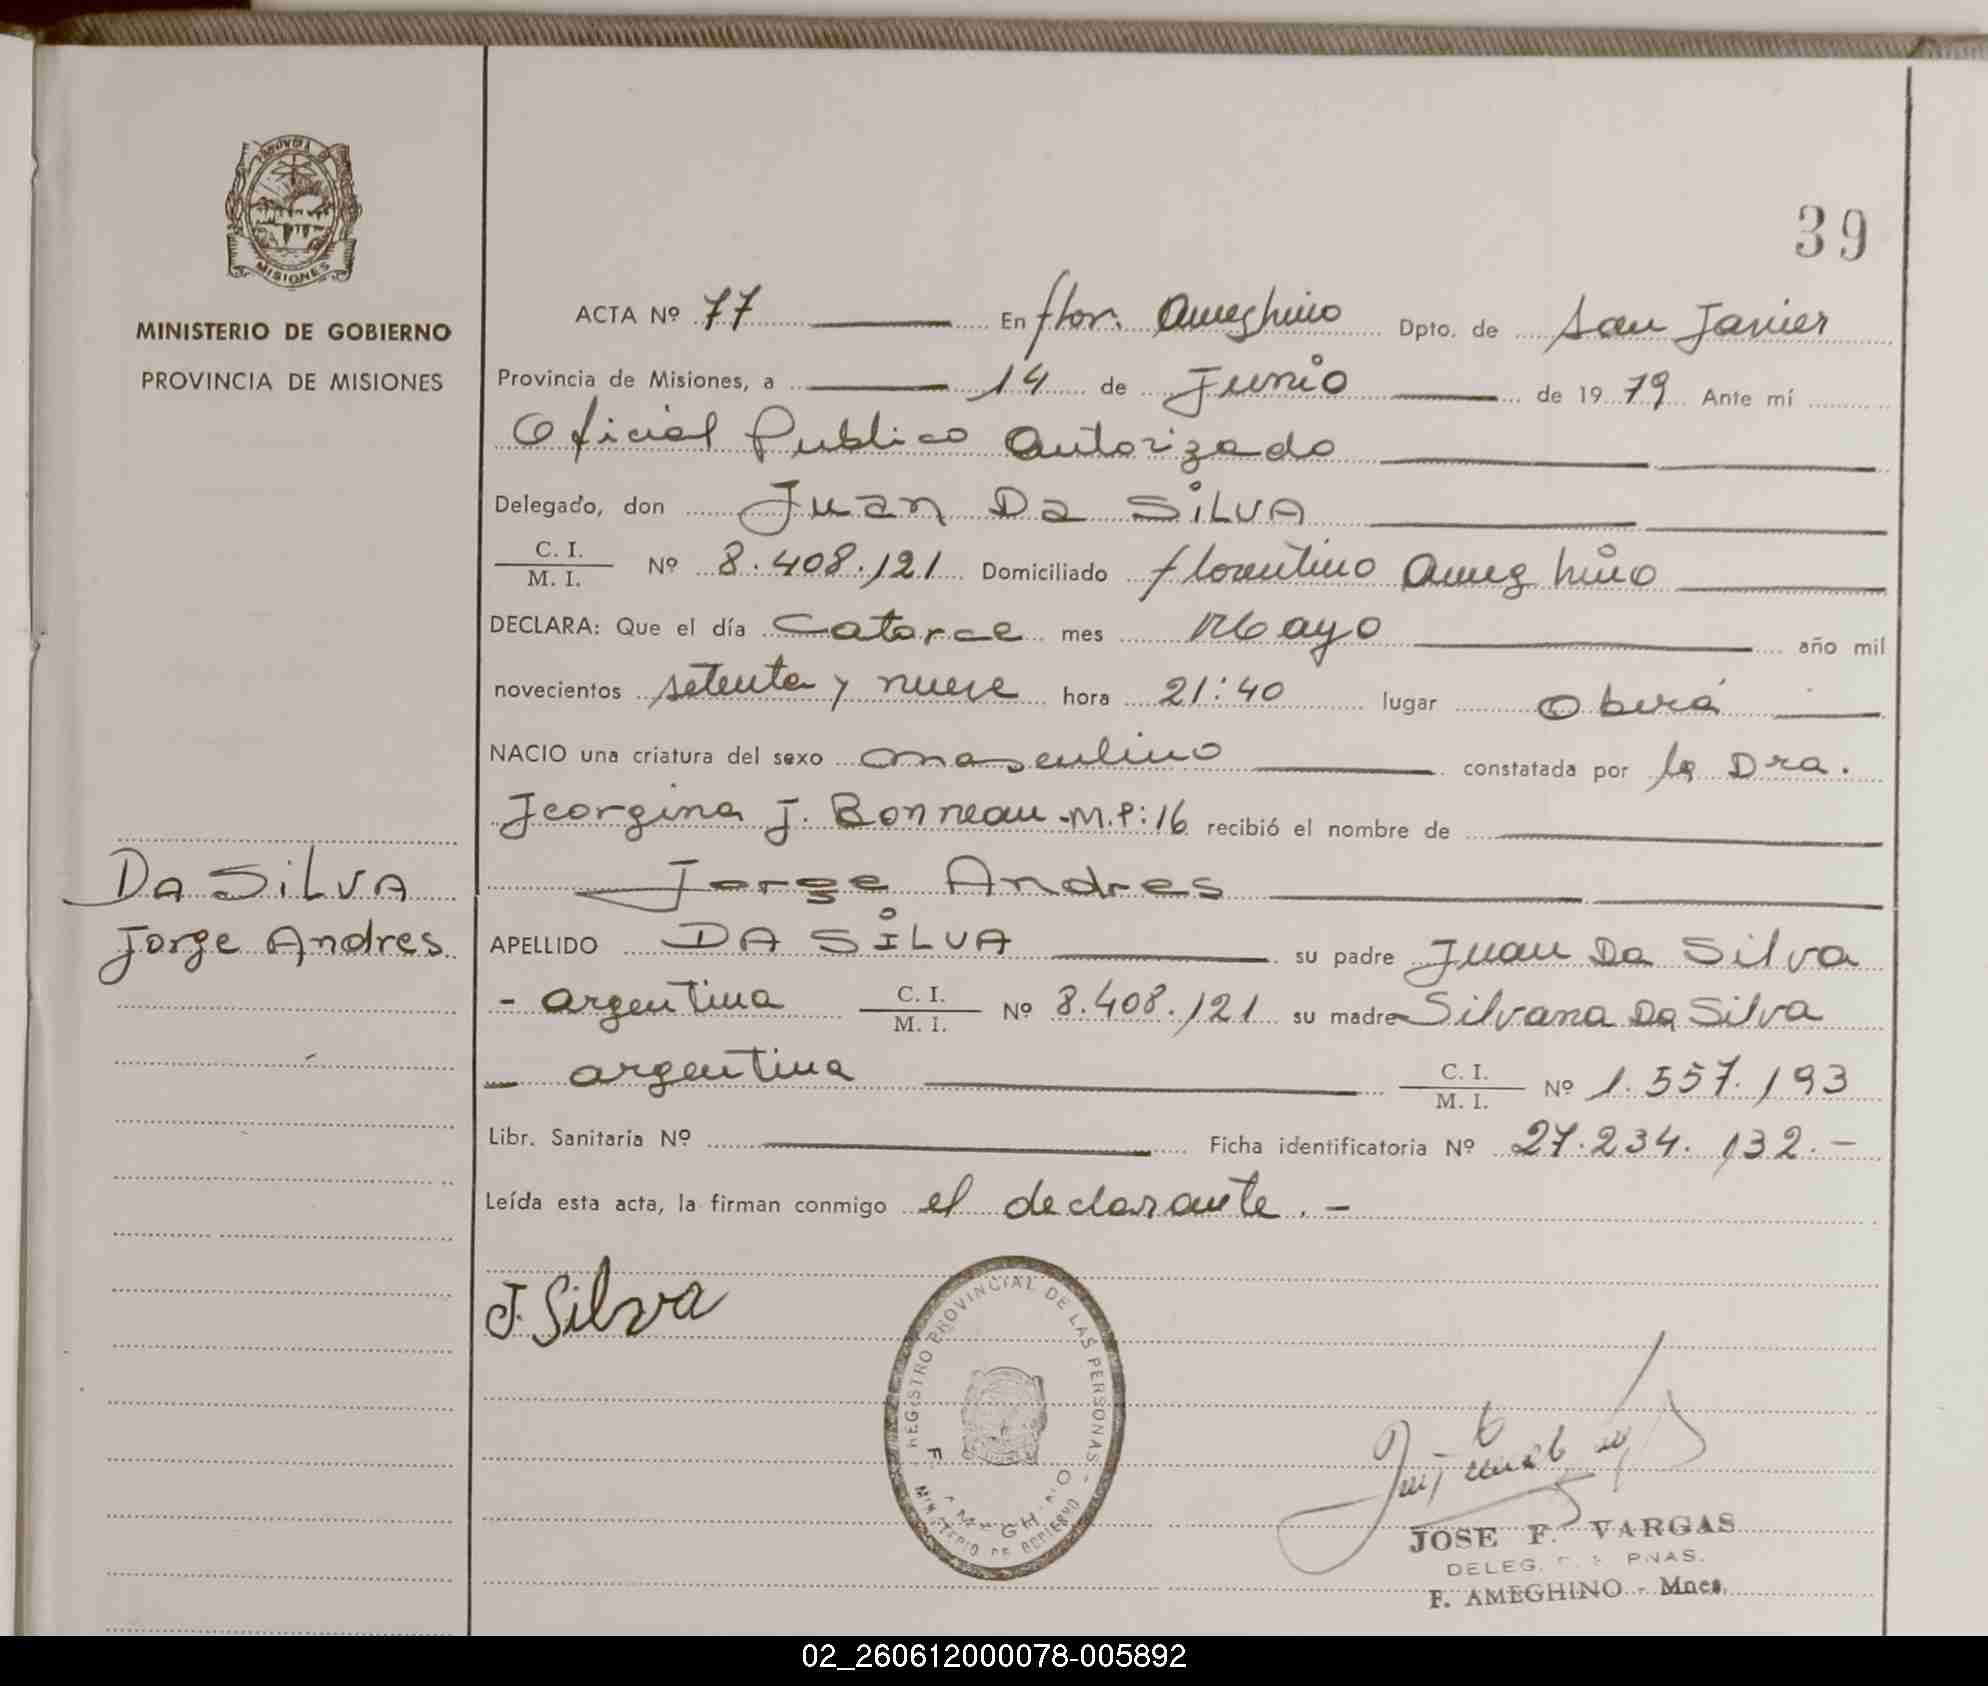 PROVINCIA DE
MISIONES
MINISTERIO DE GOBIERNO
PROVINCIA DE MISIONES
Da Silva
Jorge Andres
39
ACTA Nº 77 En flor. Ameghino Dpto. de San Javier
Provincia de Misiones, a 14 de Junio de 1979 Ante mí
Oficial Publico Autorizado
Delegado, don Juan Da Silva
C. I.
M. I. Nº 8.408.121 Domiciliado florentino Ameghino
DECLARA: Que el día Catorce mes Mayo año mil
novecientos setenta y nueve hora 21:40 lugar Oberá
NACIO una criatura del sexo masculino constatada por la Dra.
Jeorgina J. Bonneau-M.P:16 recibió el nombre de
Jorge Andres
APELLIDO DA SILVA su padre Juan Da Silva
- argentina C. I.
M. I. Nº 8.408.121 su madre Silvana Da Silva
- argentina C. I.
M. I. Nº 1.557.193
Libr. Sanitaria Nº Ficha identificatoria Nº 27.234.132.-
Leída esta acta, la firman conmigo el declarante.-
J. Silva
REGISTRO PROVINCIAL DE LAS PERSONAS -
F. AMEGHINO
MINISTERIO DE GOBIERNO
JOSE F. VARGAS
DELEG. PNAS.
F. AMEGHINO - Mnes.
02_260612000078-005892